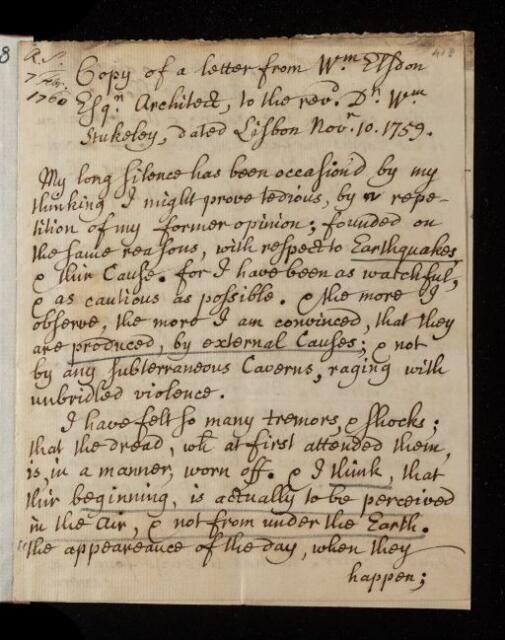 8
418
R.S.
7
1760
Copy of a letter from Wm Elsdon
Esqr. Architect, to the revd. Dr. Wm
Stukeley, dated Lisbon Novr. 10. 1759.
My long silence has been occasion'd by my
thinking I might prove tedious, by repe-
tition of my former opinion; founded on
the same reasons, with respect to Earthquakes,
& thir Cause. for I have been as watchful,
& as cautious as possible. & the more I
observe, the more I am convinced, that they
are produced, by external Causes; & not
by any subterraneous Caverns, raging with
unbridled violence.
I have felt so many tremors, & shocks;
that the dread, wh. at first attended them,
is, in a manner, worn off. & I think, that
thir beginning, is actually to be perceived
in the air, & not from under the Earth.
the appearance of the day, when they
happen;